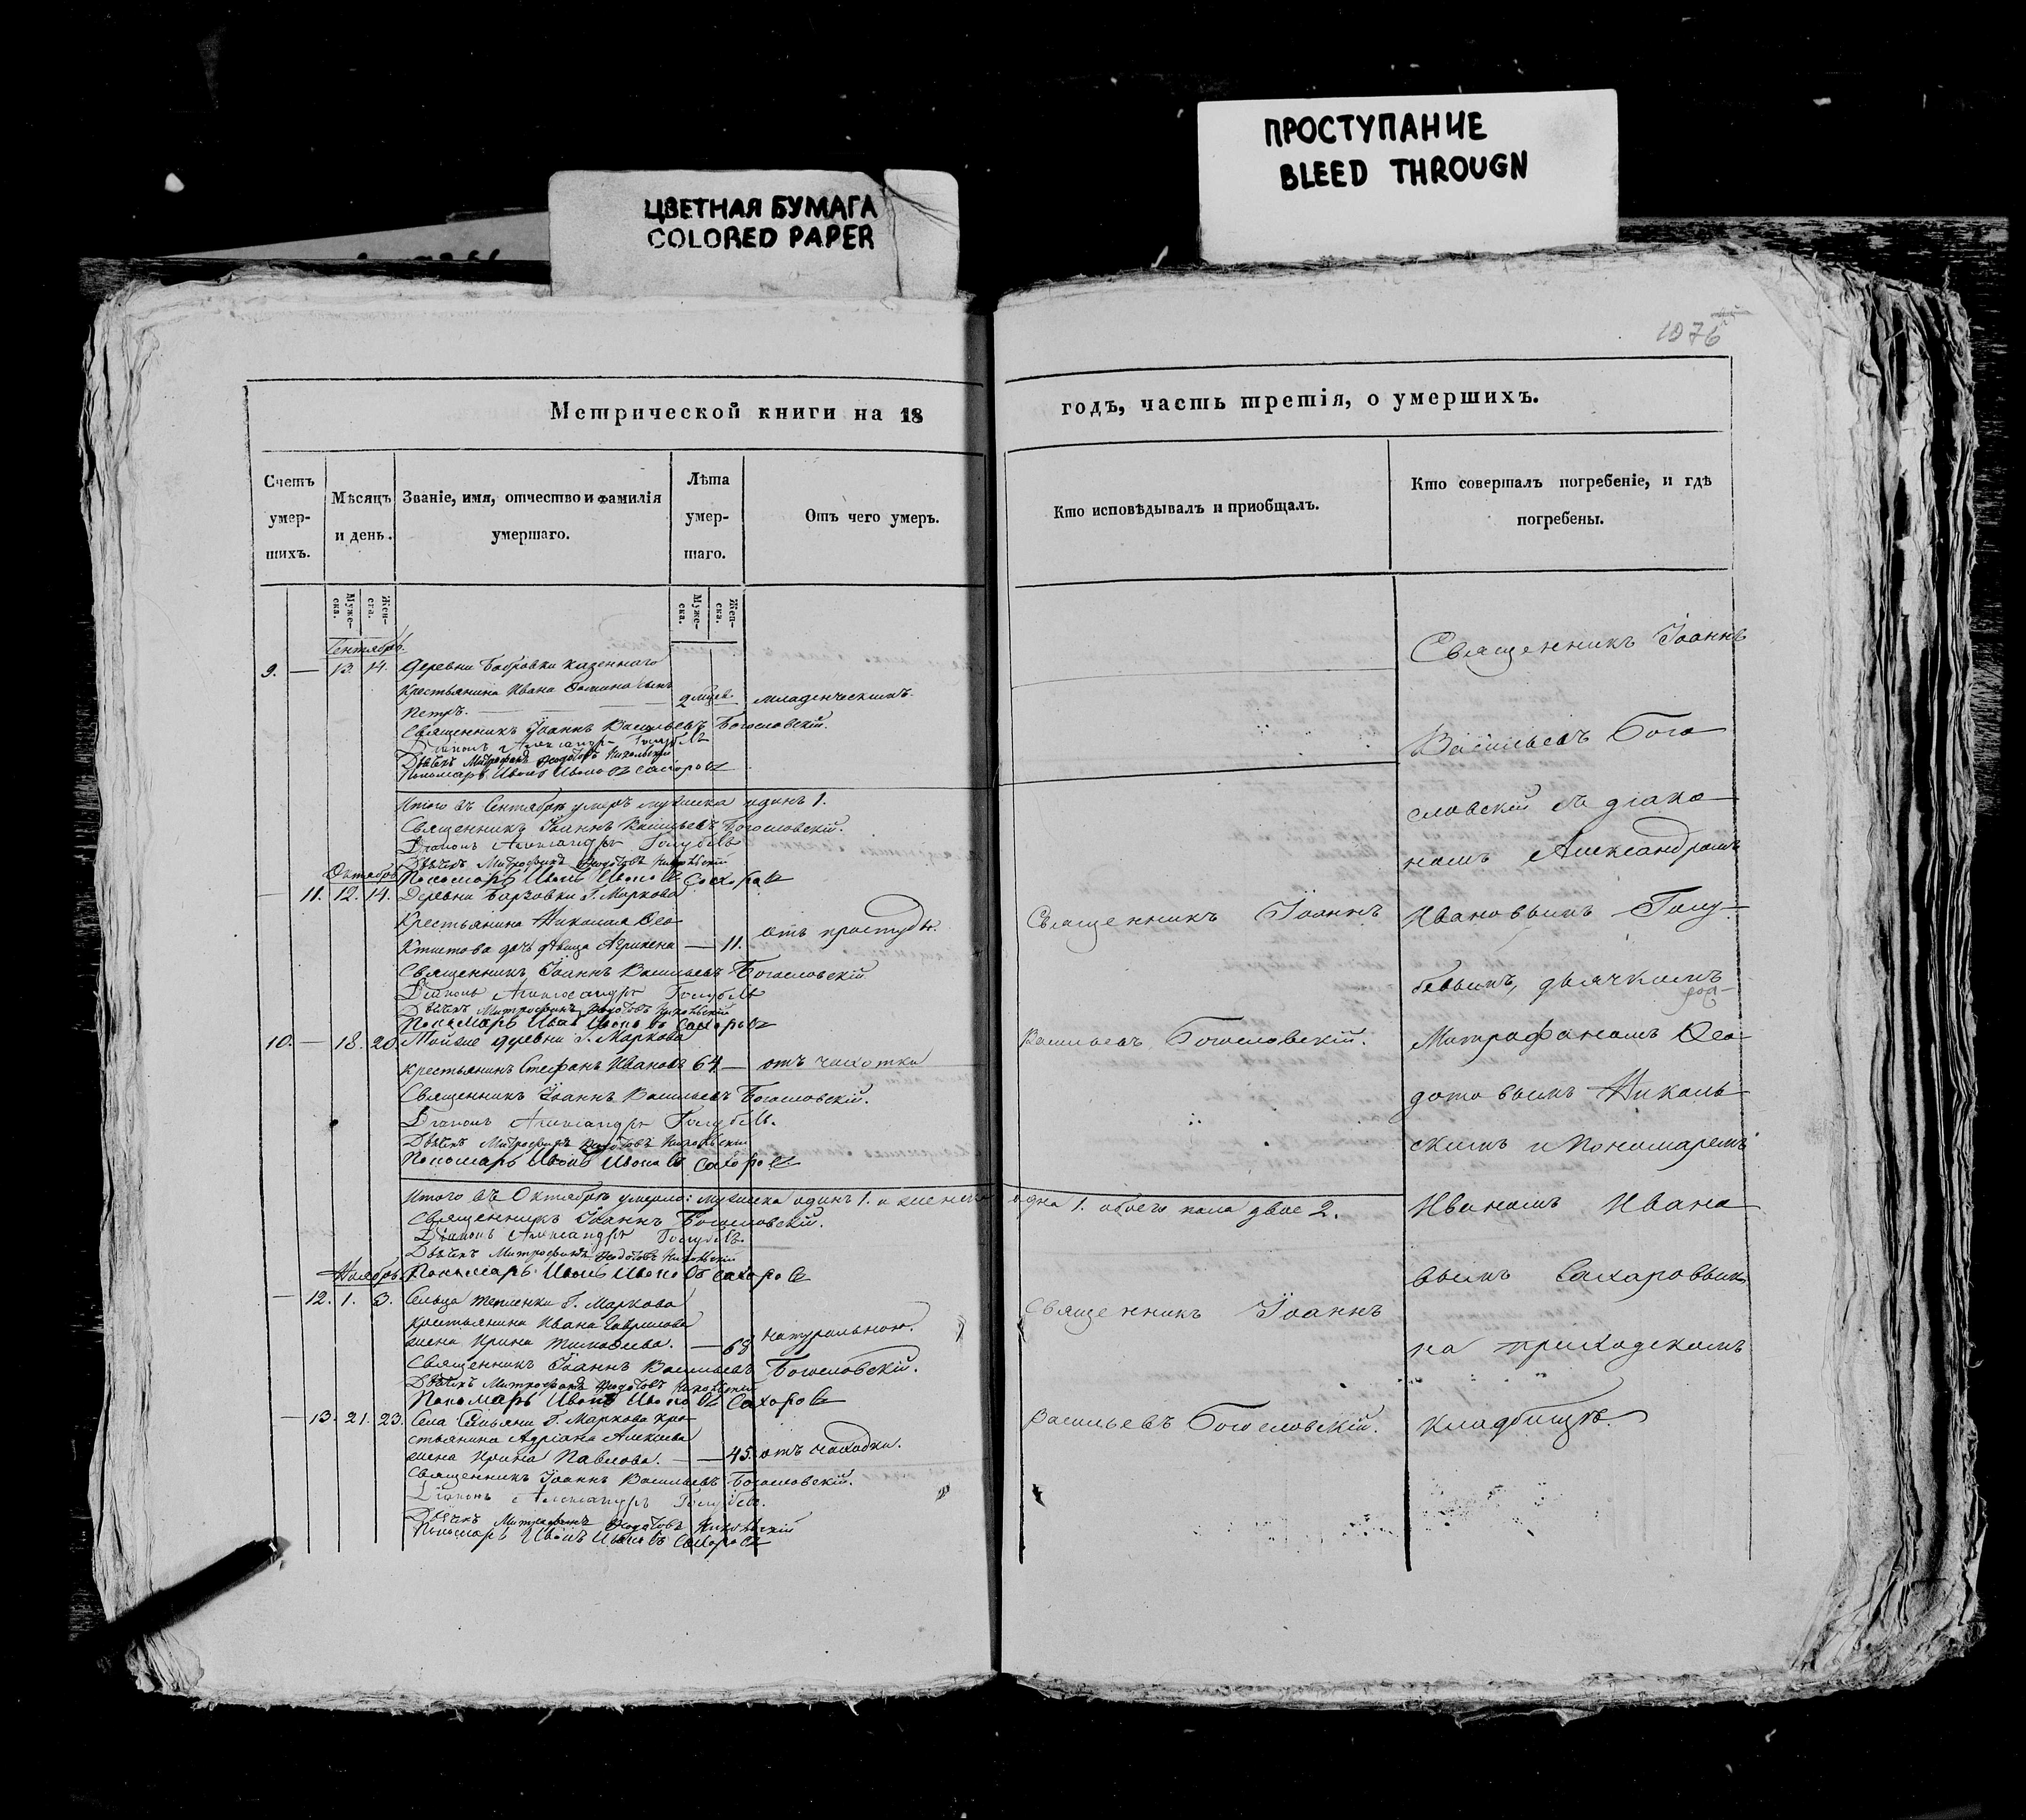 ПРОСТУПАНИЕ
BLEED THROUGN
ЦВЕТНАЯ БУМАГА
COLORED PAPER
1076
Метрической книги на 18
годъ, часть третія, о умершихъ.
Счетъ умер-шихъ.
Мѣсяцъ и день.
Званіе, имя, отчество и фамилія умершаго.
Лѣта умер-шаго.
Отъ чего умеръ.
Кто исповѣдывалъ и приобщалъ.
Кто совершалъ погребеніе, и гдѣ погребены.
Муже-ска.
Жен-ска.
Муже-ска.
Жен-ска.
Сентябрь.
9. — 13. 14. Деревни Бобровки казеннаго
крестьянина Ивана сынъ
Петръ. — младенческимъ.
Священникъ Іоаннъ Васильевъ Богословскій.
Діаконъ Александръ Голубевъ
Дьячекъ Митрофанъ Ѳеодотовъ Никольскій
Пономарь Иванъ Ивановъ Сахаровъ
Итого въ Сентябрѣ умеръ мужеска одинъ 1.
Священникъ Іоаннъ Васильевъ Богословскій.
Діаконъ Александръ Голубевъ
Дьячекъ Митрофанъ Ѳеодотовъ Никольскій
Октябрь
Пономарь Иванъ Ивановъ Сахаровъ
— 11. 12. 14. Деревни Г. Маркова
Крестьянина Николая Ѳео
ктистова дочь дѣвица — 11. отъ простуды.
Священникъ Іоаннъ Васильевъ Богословскій
Діаконъ Александръ Голубевъ
Дьячекъ Митрофанъ Ѳеодотовъ Никольскій
Пономарь Иванъ Ивановъ Сахаровъ
10. — 18. 20. Тойже деревни Г. Маркова
крестьянинъ Стефанъ Ивановъ 64 — отъ чахотки
Священникъ Іоаннъ Васильевъ Богословскій.
Діаконъ Александръ Голубевъ.
Дьячекъ Митрофанъ Ѳеодотовъ Никольскій
Пономарь Иванъ Ивановъ Сахаровъ
Итого въ Октябрѣ умерло: мужеска одинъ 1. и женска одна 1. обоего пола двое 2.
Священникъ Іоаннъ Богословскій.
Діаконъ Александръ Голубевъ
Дьячекъ Митрофанъ Ѳеодотовъ Никольскій
Ноябрь
Пономарь Иванъ Ивановъ Сахаровъ
— 12. 1. 3. Сельца Тепленки Г. Маркова
крестьянина Ивана Гаврилова
жена Ирина Тимоѳеева. — 68 натуральною.
Священникъ Іоаннъ Васильевъ Богословскій.
Дьячекъ Митрофанъ Ѳеодотовъ Никольскій
Пономарь Иванъ Ивановъ Сахаровъ
— 13. 21. 23. Села Г. Маркова кре
стьянина Адріана Алексѣева
жена Ирина Павлова. — 45. отъ чаходки.
Священникъ Іоаннъ Васильевъ Богословскій.
Діаконъ Александръ Голубевъ.
Дьячекъ Митрофанъ Ѳеодотовъ Никольскій
Пономарь Иванъ Ивановъ Сахаровъ
Священникъ Іоаннъ
Васильевъ Богословскій.
Священникъ Іоаннъ
Васильевъ Богословскій.
Священникъ Іоаннъ
Васильевъ Бого
словскій съ діако
номъ Александромъ
Ивановымъ Голу-
бевымъ, дьячкомъ
Митрофаномъ Ѳео-
дотовымъ Николь
скимъ и Пономаремъ
Иваномъ Ивано
вымъ Сахаровымъ
на приходскомъ
кладбищѣ.